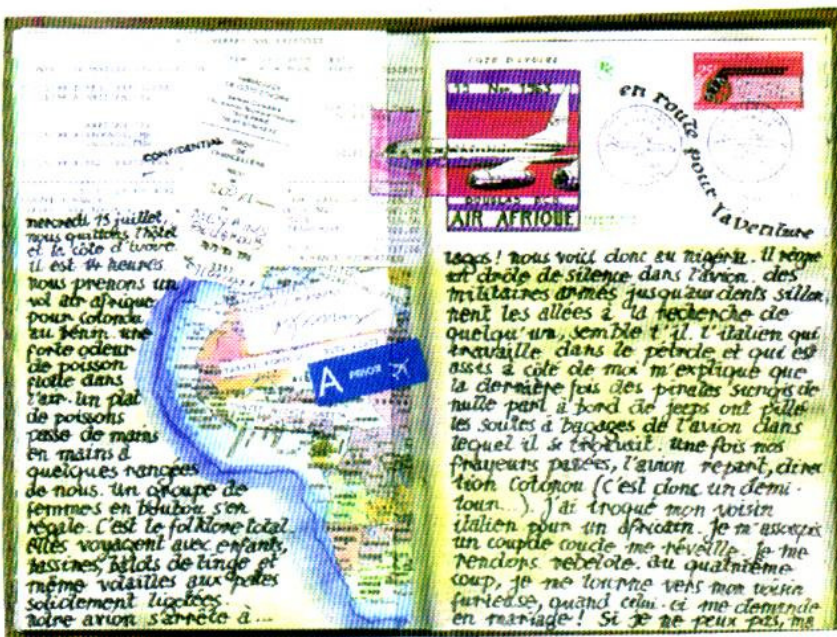 CONFIDENTIAL
mercredi 15 juillet,
nous quittons l'hôtel
et la côte d'ivoire.
il est 14 heures.
nous prenons un
vol air afrique
pour cotonou
au bénin. une
forte odeur
de poisson
flotte dans
l'air. un plat
de poissons
passe de mains
en mains à
quelques rangées
de nous. un groupe de
femmes en boubou s'en
régale. C'est le folklore total.
elles voyagent avec enfants,
bassines, balots de linge et
même volailles aux pattes
solidement ligotées.
notre avion s'arrête à ...
A PRIOR
COTE D'IVOIRE
19 Nov. 1963
DOUGLAS DC8
AIR AFRIQUE
en route pour l'aventure
lagos! nous voici donc au nigéria. il règne
un drôle de silence dans l'avion. des
militaires armés jusqu'aux dents sillon
nent les allées à la recherche de
quelqu'un, semble t'il. l'italien qui
travaille dans le pétrole et qui est
assis à côté de moi m'explique que
la dernière fois des pirates surgis de
nulle part à bord de jeeps ont pillé
les soutes à bagages de l'avion dans
lequel il se trouvait. une fois nos
frayeurs passées, l'avion repart, direc
tion Cotonou (c'est donc un demi-
tour...). j'ai troqué mon voisin
italien pour un africain. je m'assoupis
un coup de coude me réveille. je me
rendors. rebelote. au quatrième
coup, je me tourne vers mon voisin
furieuse, quand celui-ci me demande
en mariage! Si je ne peux pas, ma